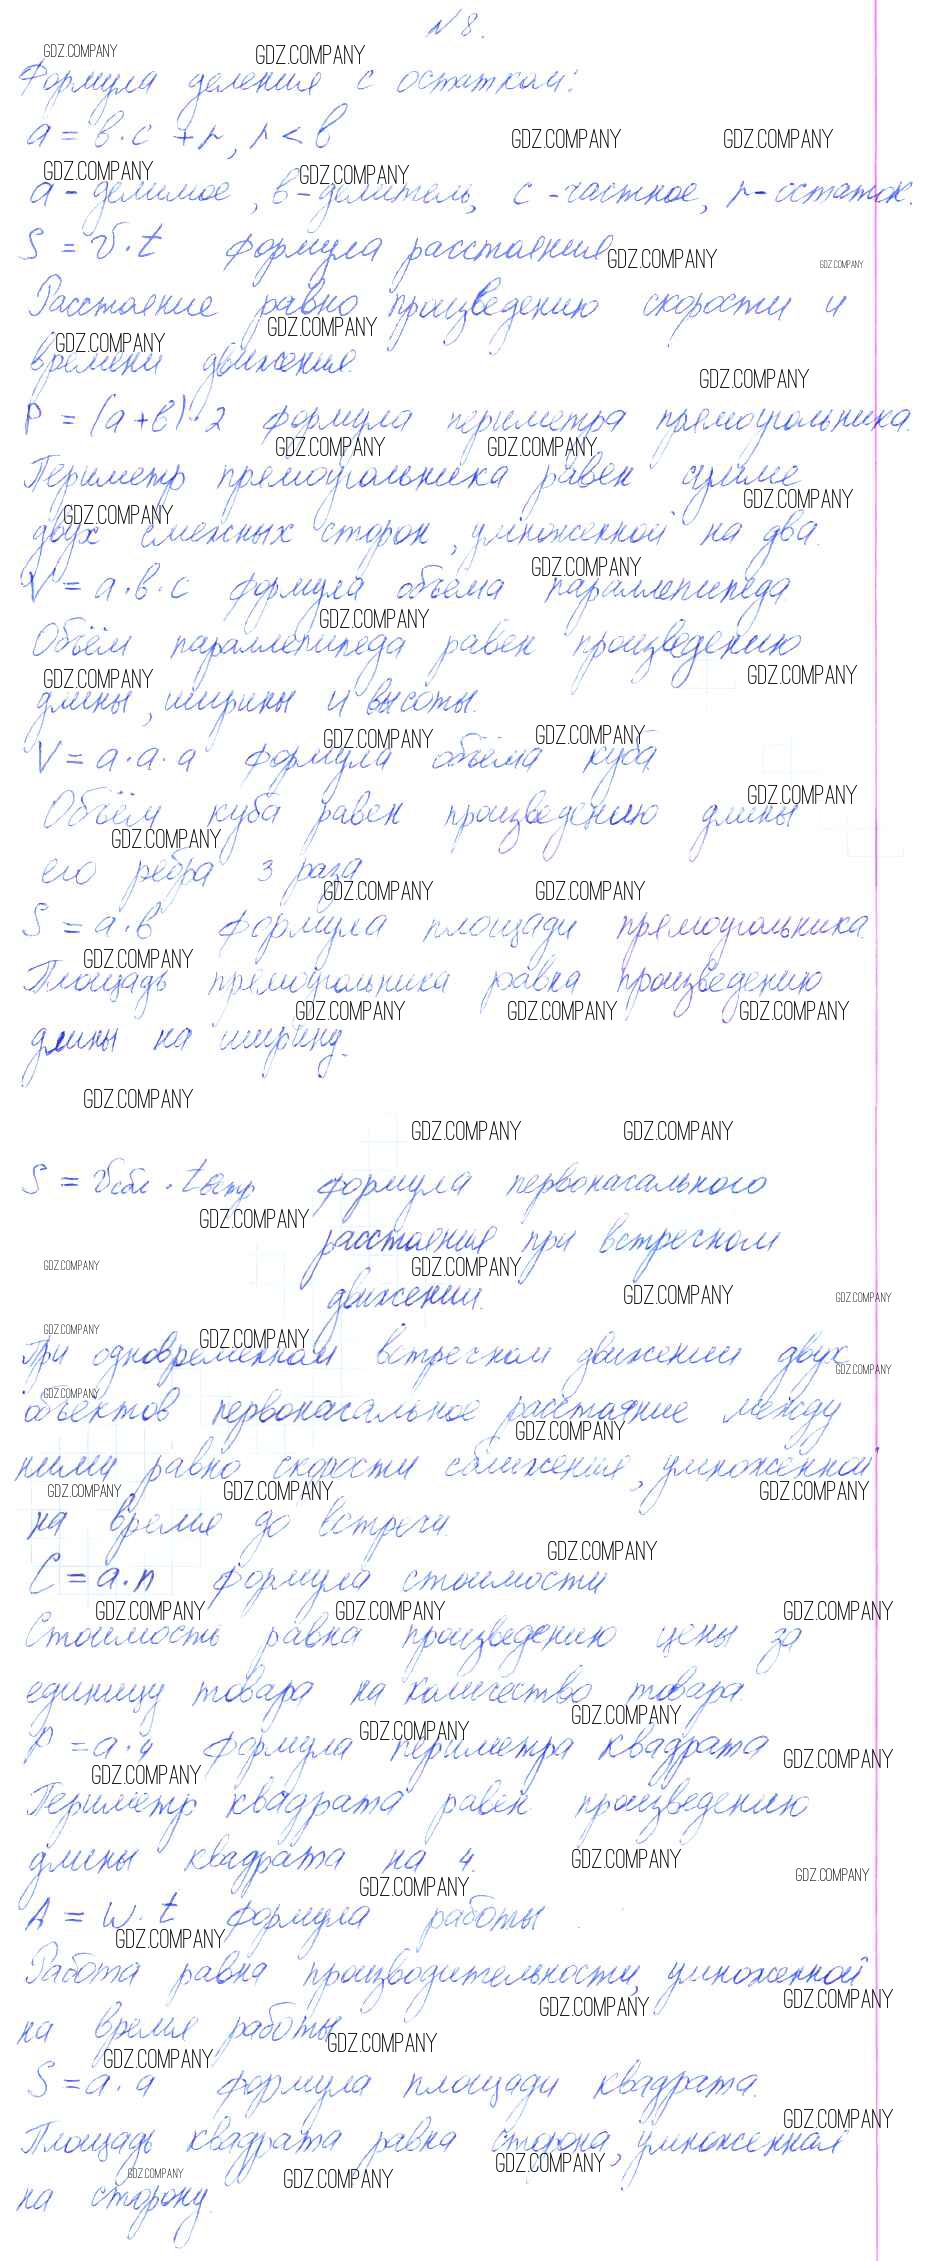 N8.
Формула деления с остатком:
a = в · c + r, r < в
a - делимое, в - делитель, c - частное, r - остаток.
S = v · t формула расстояния
Расстояние равно произведению скорости и
времени движения.
P = (a + в) · 2 формула периметра прямоугольника.
Периметр прямоугольника равен сумме
двух смежных сторон, умноженной на два.
V = a · в · c формула объема параллепипеда
Объём параллепипеда равен произведению
длины, ширины и высоты.
V = a · a · a формула объёма куба
Объём куба равен произведению длины
его ребра 3 раза
S = a · в формула площади прямоугольника.
Площадь прямоугольника равна произведению
длины на ширину.
S = vсбл · tвстр формула первоначального
расстояния при встречном
движении.
При одновременном встречном движении двух
объектов первоначальное расстояние между
ними равно скорости сближения, умноженной
на время до встречи.
C = a · n формула стоимости
Стоимость равна произведению цены за
единицу товара на количество товара.
P = a · 4 формула периметра квадрата
Периметр квадрата равен произведению
длины квадрата на 4.
A = w · t формула работы
Работа равна производительности, умноженной
на время работы
S = a · a формула площади квадрата.
Площадь квадрата равна сторона, умноженная
на сторону.
GDZ.COMPANY